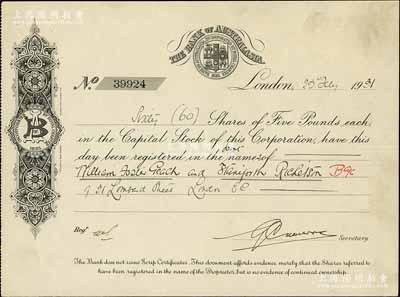 THE BANK OF AUSTRALASIA.
No 39924
London, 25 July 1931
Sixty (60) Shares of Five Pounds each,
in the Capital Stock of this Corporation, have this
day been registered in the names of
William and
of 21 Lombard Street London EC
Regd
Secretary
The Bank does not issue Scrip Certificates. This document affords evidence merely that the Shares referred to
have been registered in the name of the Proprietor, but is no evidence of continued ownership.